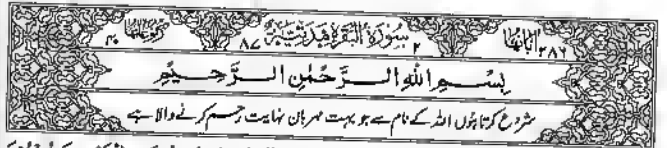 اٰیَاتُهَا ۲۸۶ ۲ سُوْرَةُ الْبَقَرَةِ مَدَنِیَّةٌ ۸۷ رُکُوْعَاتُهَا ۴۰
بِسْمِ اللّٰهِ الرَّحْمٰنِ الرَّحِیْمِ
شروع کرتا ہوں اللہ کے نام سے جو بہت مہربان نہایت رحم کرنے والا ہے